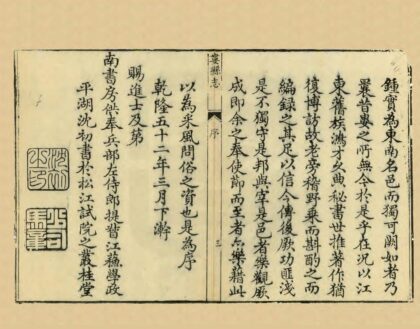 鍾實為東南名邑而獨可闕如者乃
曩昔婁之所無令於是乎在況以江
東舊族鴻才久典秘書世推著作猶
復博訪故老旁稽野乘而斟酌之而
編錄之其足以信今傳後厥功匪淺
是不獨守是邦與宰是邑者樂觀厥
成即余之奉使節而至者亦樂藉此
婁縣志
序
三
以為采風問俗之資也是為序
乾隆五十二年三月下澣
賜進士及第
南書房供奉兵部左侍郎提督江蘇學政
平湖沈初書於松江試院之叢桂堂